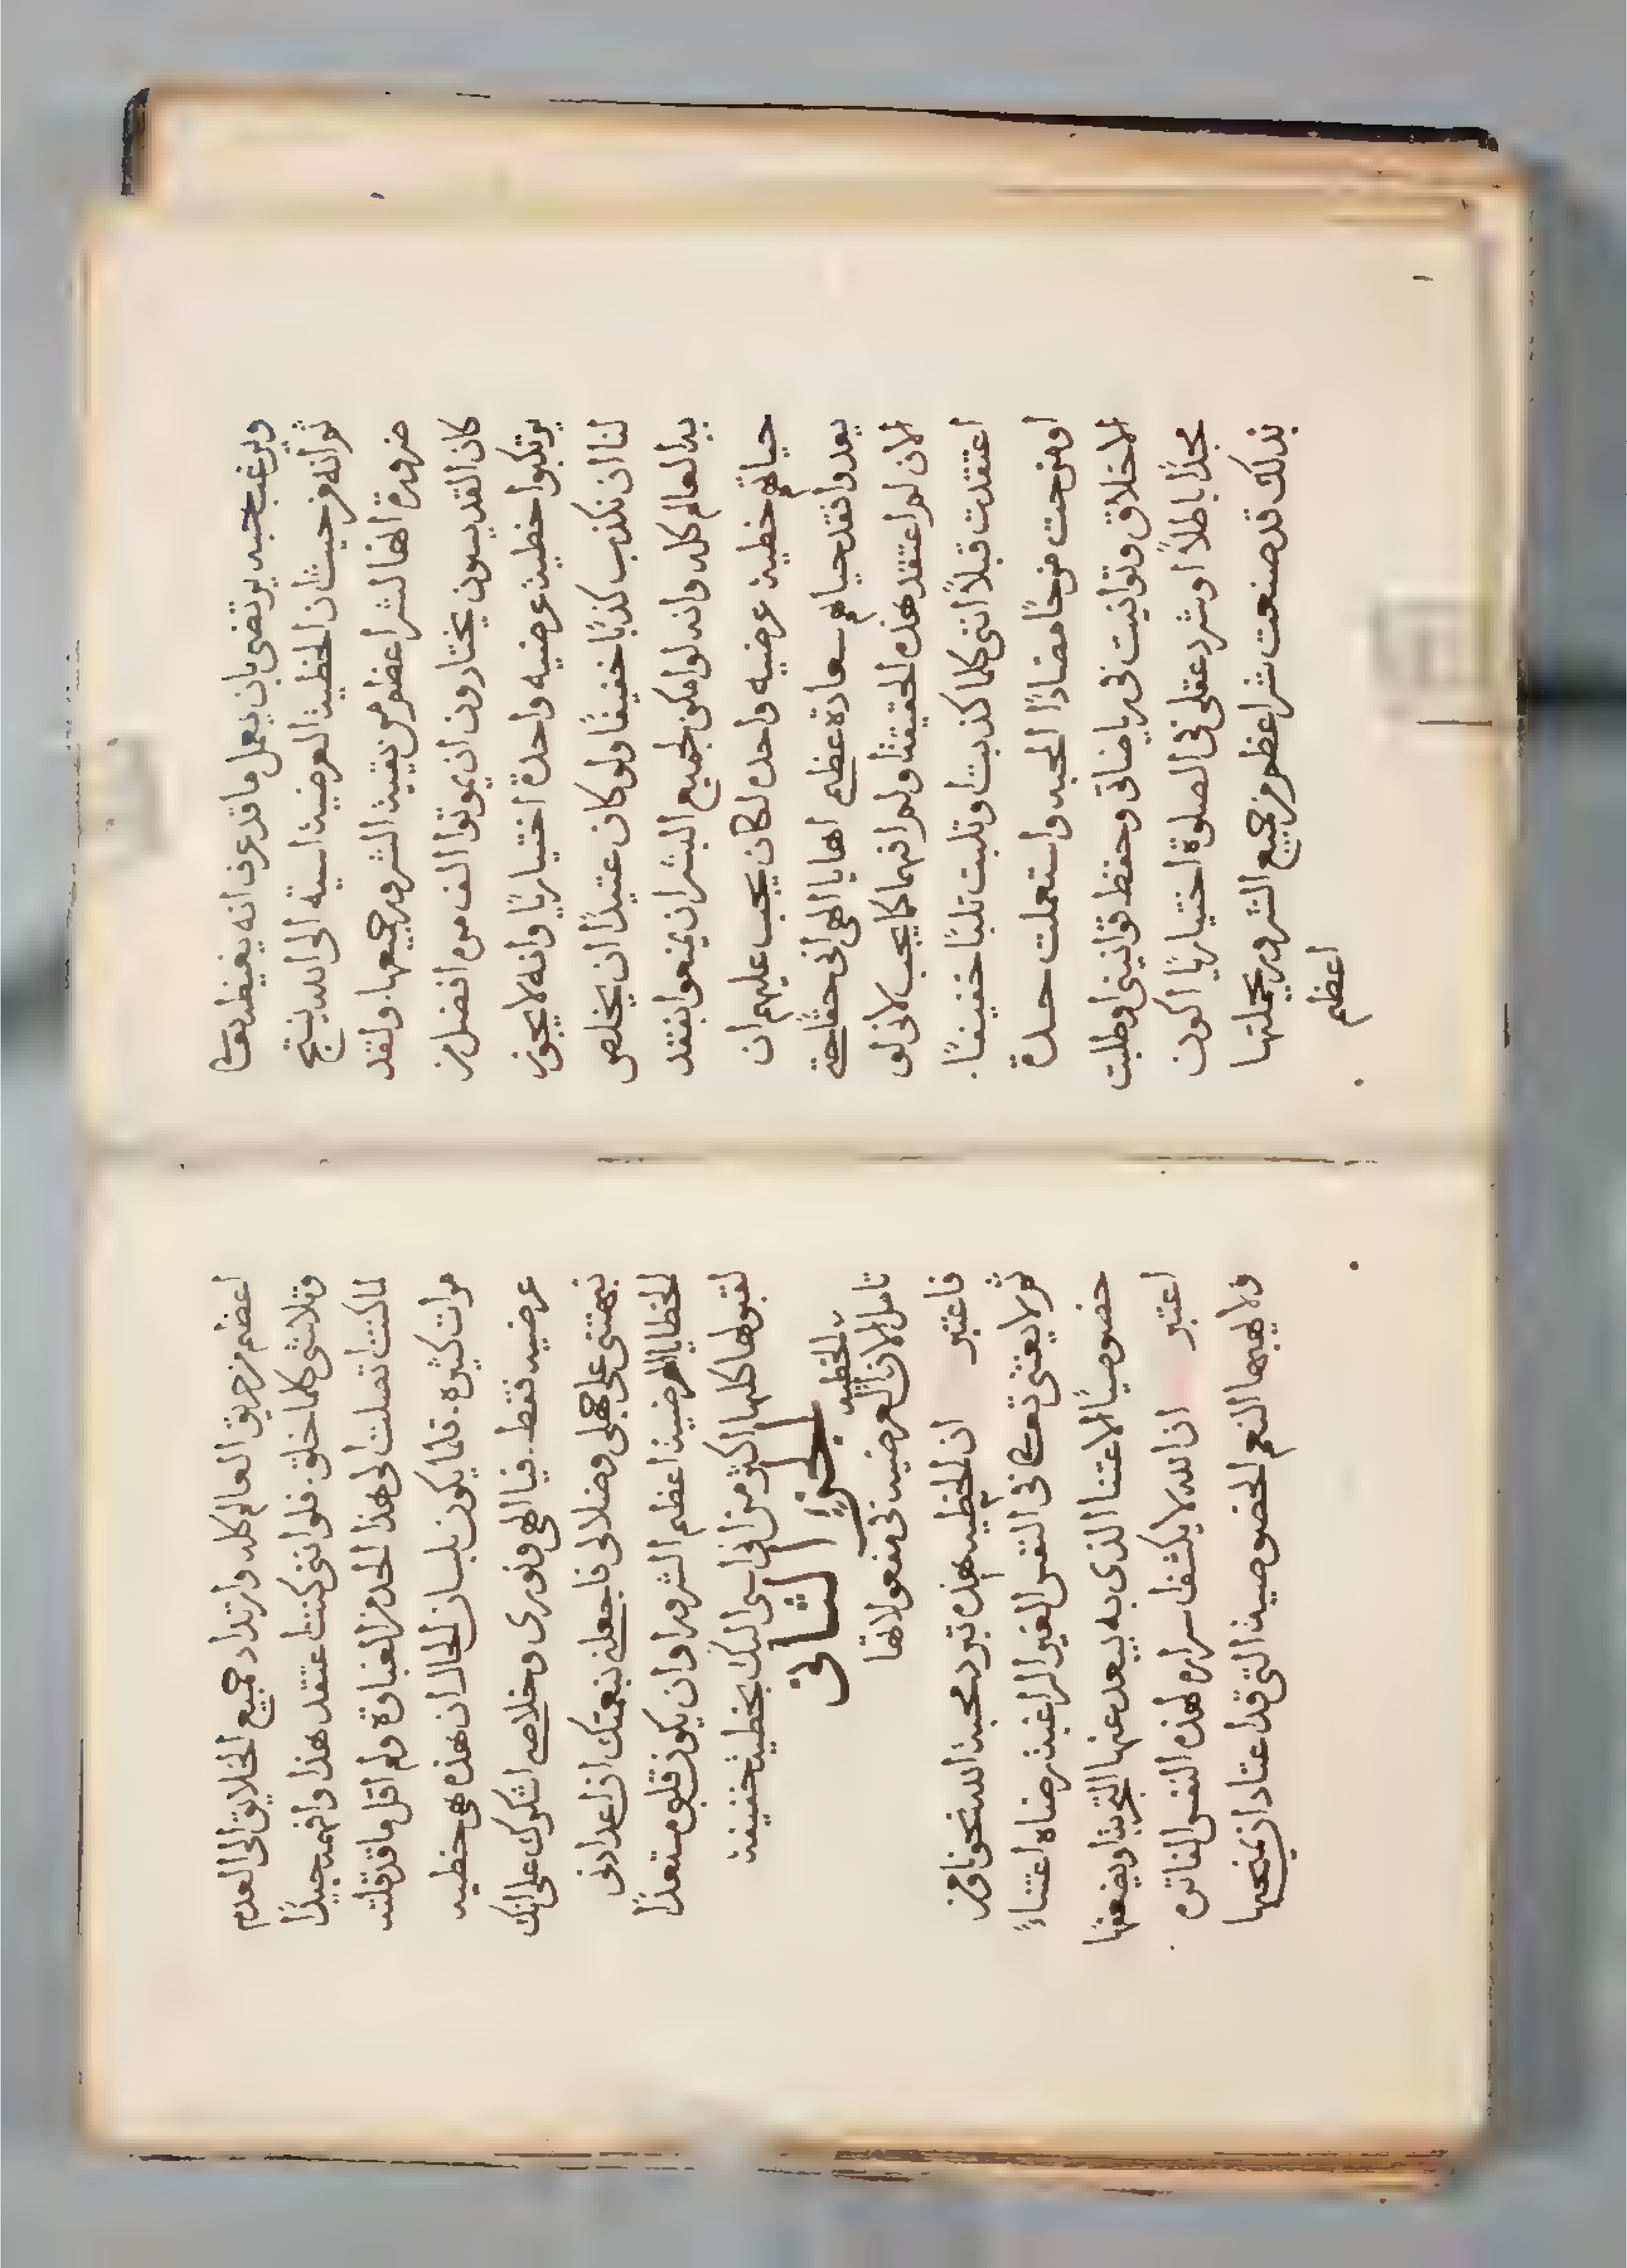 ويرغب حبه يرتضي بان يعمل ما قد عرف انه يغيظه تعالى
ثم انه من حيث ان الخطية العرضية اسية الى الله ينتج
ضرورة انها لشر اعظم من بقية الشرور جميعها. ولقد
كان القديسون يختارون ان يموتوا الف مرم افضل من
يرتكبوا خطية عرضيه واحدة اختياريًا وانه لا يجوز
لنا ان نكذب كذبًا خفيفًا ولو كان عتيدًا ان يخلص
به العالم كله وانه لو امكن لجميع البشر ان يمنعوا بفقد
حياتهم خطية عرضيه واحده لكان يجب عليهم ان
يعدوا فقد حياتهم سعادة عظيم اها يا الهي اني حقًا حتى
الان لم اعتقد هذه الحقيقة ولم افهما كما يجب لاني لو
اعتقدت قبلاً انني كلما كذبت او تلبت تلبًا خفيفًا.
او مزحت مزحًا مضادًا المحبه واستعملت حدة
الاخلاق وتوانيت في رياضاتي وحفظ قوانيني او طلبت
مجدًا باطلاً او شرد عقلي في الصلوة اختياريًا اكون
بذلك قد صنعت شر اعظم من جميع الشرور بجملتها
اعظم
اعظم من حريق العالم كله وارتداد جميع الخلايق الى العدم
وتلاشي كلما خلق. فلو انني كنت اعتقد هذا وافهمه جيدًا
لما كنت اتصلت الى هذا الحد من الغباوة ولم اقل ما قد قلته
مرات كثيره. قلما يكون بلسان الحال ان هذه هي خطيه
عرضيه فقط. فيا الهي ونوري وخلاصي اشكرك على انك
نبهتني على جهلي وضلالي فاجعلني بنعمتك ان اعدادني
الخطايا العرضية اعظم الشرور وان يكون قلبي مستعدًا
لقبولها كلها اكثر من اني اسي اليك بخطية خفيفة
الجزء الثاني
تامل الان الخطيه العرضيه في مفعولاتها
فاعتبر ان الخطيه هذه تبرد محبة الله نحونا فمن
ثم لا يعتني تعالى في النفس الغير الراغبة رضاه اعتناءً
خصوصيًا الاعتنا الذي به يبعد عنها التجربة او يضعفها
اعتبر ان الله لا يكشف اسراره لهذه النفس الفاتره
ولا يهبها النعم الخصوصية التي قد اعتاد ان يمنحها